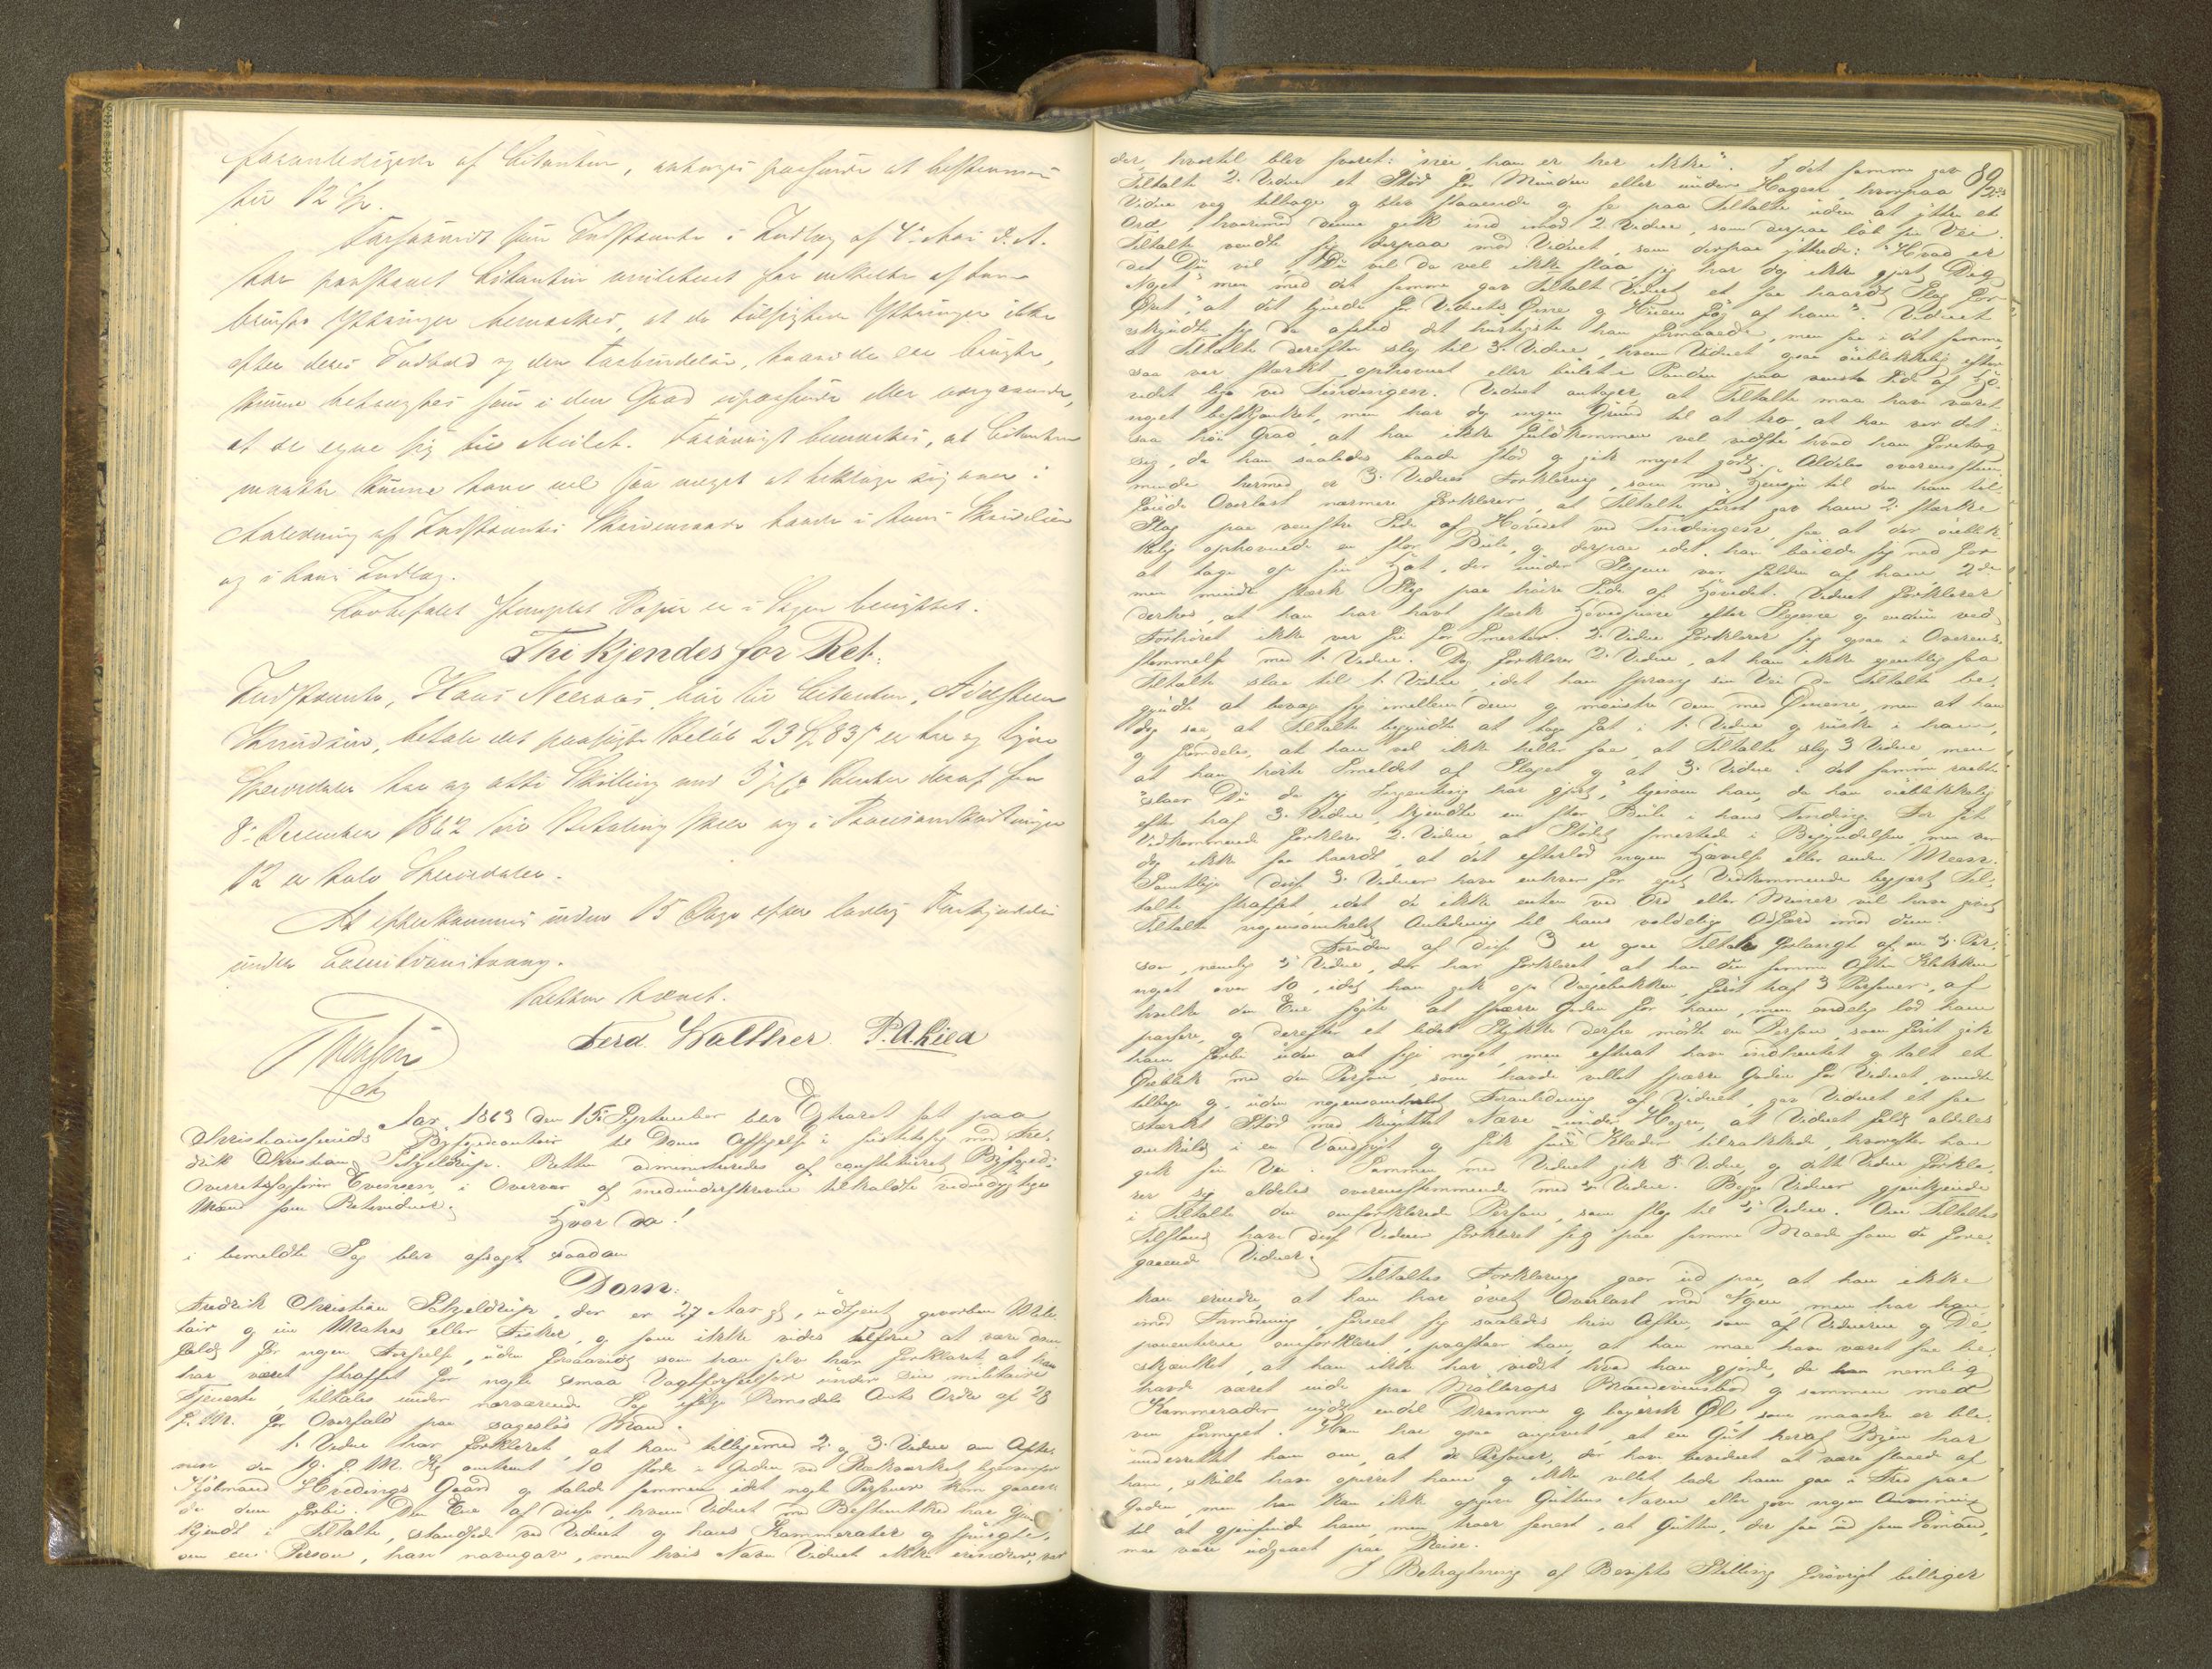 foranledigede af Citanten, antages passende at bestemmes
til 12 Spd.
Forsaavidt som Indstævnte i Indlæg af 4de Mai d. A.
har paastaaet Citanten mulcteret for enkelte af ham
brugte Yttringer bemærkes, at de tilsigtede Yttringer ikke
efter deres Indhold og den Forbindelse, hvori de ere brugte,
kunne betragtes som i den Grad upassende eller uvorne,
at de egne sig til Mulct. Forøvrigt bemærkes, at Citanten
maatte kunne have vel saa meget at beklage sig over i
Anledning af Indstævntes Skrivemaade baade i hans Skrivelser
og i hans Indlæg.
Lovbefalet stemplet Papir er i Sagen benyttet.
Thi kjendes for Ret:
Indstævnte, Hans Neeraas, bør til Citanten, Adelsteen
betale det paasøgte Beløb 23 Spd. 83 s er tre og tyve
Speciedaler tre og otti Skilling med 5 pCt Renter deraf fra
8de December 1862 til Betaling skeer og i Procesomkostninger
12 er tolv Speciedaler.
At efterkommes inden 15 Dage efter lovlig Forkyndelse
under Executionstvang.
Retten hævet.
Ferd. Walther. P. A. Lied
Aar 1863 den 15de September blev Extraret sat paa
Christianssunds Byfogedcontoir til Doms Afsigelse i Justitssag mod Fred-
rik Christian Schjeldrup. Retten administreredes af constitueret Byfoged,
Overretssagfører Evensen, i Overvær af medunderskrevne tilkaldte vederhæftige
Mænd som Retsvidner.
Hvor da!
i bemeldte Sag blev afsagt saadan
Dom:
Fredrik Christian Schjeldrup, der er 27 Aar gl., udtjent gevorben Mili-
tair og nu Matros eller Fisker, og som ikke vides tilforn at være dom-
fældt for nogen Forseelse, uden forsaavidt som han selv har forklaret at han
har været straffet for nogle smaa Vagtforseelser under sin militaire
Tjeneste, tiltales under nærværende Sag ifølge Romsdals Amts Ordre af 28
f. M. for Overfald paa sagesløs Mand.
1. Vidne har forklaret, at han tilligemed 2. og 3. Vidne om Afte-
nen den 19. f. M. Kl. omtrent 10 stode i Gaden ved Rækværket ligeoverfor
Kjøbmand Hvedings Gaard og talede sammen idet nogle Personer kom gaaen-
de dem forbi. Den Ene af disse, hvem Vidnet med Bestemthed har gjen-
kjendt i Tiltalte, standsede ved Vidnet og hans Kammerater og spurgte,
om en Person, han navngav, men hvis Navn Vidnet ikke erindrer, var
89
der, hvortil blev svaret: "nei, han er her ikke". I det samme gav
Tiltalte 2. Vidne et Stød for Munden eller under Hagen, hvorpaa 2det
Vidne veg tilbage og blev staaende og se paa Tiltalte uden at yttre et
Ord, hvorimod denne gik ind imod 2. Vidne, som derpaa løb sin Vei.
Tiltalte vendte sig derpaa mod Vidnet, som derpaa yttrede: "Hvad er
det Du vil, Du vil da vel ikke slaa, jeg har dog ikke gjort Dig
Noget" men med det samme gav Tiltalte Vidnet et saa haardt Slag for
Øret, "at det lynede for Vidnets Øine og Huen føg af ham". Vidnet
skyndte sig da afsted det hurtigste han formaaede, men saa i det samme,
at Tiltalte derefter slog til 3. Vidne, hvem Vidnet ogsaa øieblikkelig efter
saa var stærkt ophovnet eller bulet i Panden paa venstre Side af Ho-
vedet lige ved Tindingen. Vidnet antager, at Tiltalte maa have været
noget beskjænket, men har dog ingen Grund til at tro, at han var det i
saa høi Grad, at han ikke fuldkommen vel vidste hvad han foretog
sig, da han saaledes baade stod og gik meget godt. Aldeles overensstem-
mende hermed er 3. Vidnes Forklaring, som med Hensyn til den ham til-
føiede Overlast nærmere forklarer, at Tiltalte først gav ham 2 stærke
Slag paa venstre Side af Hovedet ved Tindingen, saa at der øieblik-
kelig ophovnede en stor Bule, og derpaa idet han bøiede sig ned for
at tage op sin Hat, der under Slagene var falden af ham, 2de
men mindre stærk Slag paa høire Side af Hovedet. Vidnet forklarer
derhos, at han har havt stærk Hovedpine efter Slagene og endnu ved
Forhøret ikke var fri for Smerter. 2. Vidne forklarer sig ogsaa i Overens-
stemmelse med 1. Vidne. Dog forklarer 2. Vidne, at han ikke egentlig saa
Tiltalte slaa til 1. Vidne, idet han sprang sin Vei da Tiltalte be-
gyndte at bevæge sig imellem dem og mønstre dem med Øinene, men at han
dog saa, at Tiltalte begyndte at tage fat i 1. Vidne og ruske i ham,
og fremdeles, at han vel ikke heller saa, at Tiltalte slog 3. Vidne, men
at han hørte Smeldet af Slaget og at 3. Vidne i det samme raabte
"slaaer Du da jeg Ingenting har gjort," ligesom han, da han øieblikkelig
efter traf 3. Vidne, kjendte en stor Bule i hans Tinding. For sit
Vedkommende forklarer 2. Vidne, at Stødet smertede i Begyndelsen, men var
dog ikke saa haardt, at det efterlod nogen Hævelse eller andre Meen.
Samtlige disse 3. Vidner have enhver for eget Vedkommende begjært Til-
talte straffet, idet de ikke enten ved Ord eller Miner vil have givet
Tiltalte nogensomhelst Anledning til hans voldelige Adfærd mod dem.
Foruden af disse 3 er ogsaa Tiltalte paaklaget af en 4. Per-
son, nemlig Vidne, der har forklaret, at han den samme Aften Klokken
noget over 10, idet han gik op Vaagebakken, først traf 3 Personer, af
hvilke den Ene søgte at spærre Gaden for ham, men endelig lod ham
passere, og derefter et lidet Stykke derfra mødte en Person, som først gik
ham forbi uden at sige noget, men efterat have indhentet og talt et
Øieblik med den Person, som havde villet spærre Gaden for Vidnet, vendte
tilbage og, uden nogensomhelst Foranledning af Vidnet, gav Vidnet et saa
stærkt Stød med knyttet Næve under Hagen, at Vidnet faldt aldeles
omkuld i en Vandpyt og fik sine Klæder tilsølede, hvorefter han
gik sin Vei. Sammen med Vidnet gik 8. Vidne, og dette Vidne forkla-
rer sig aldeles overensstemmende med Vidne. Begge Vidner gjenkjende
i Tiltalte den omforklarede Person, som slog til Vidne. Om Tiltaltes
Tilstand have disse Vidner forklaret sig paa samme Maade som de fore-
gaaende Vidner.
Tiltaltes Forklaring gaar ud paa, at han ikke
kan erindre, at han har øvet Overlast mod Nogen, men har han
imod Formodning, forseet sig saaledes hin Aften, som af Vidnerne og De-
ponenterne omforklaret, paastaar han, at han maa have været saa be-
skjænket, at han ikke har vidst hvad han gjorde, da han nemlig
havde været inde paa Møllerops Brændeviinsbod og sammen med
Kammerader nydt endel Dramme og bayersk Øl, som maaske er ble-
ven formeget. Han har ogsaa angivet, at en Gut heraf Byen har
underrettet ham om, at de Personer, der have beviidnet at være slaaede af
ham, skulle have spærret ham og ikke villet lade ham gaa i Fred paa
Gaden, men han kan ikke opgive Guttens Navn eller give nogen Anvisning
til at gjenfinde ham, men troer senest, at Gutten, der saa ud som Sømand,
maa være udgaaet paa Reise.
I Betragtning af Bevisets Stilling forøvrigt billiger